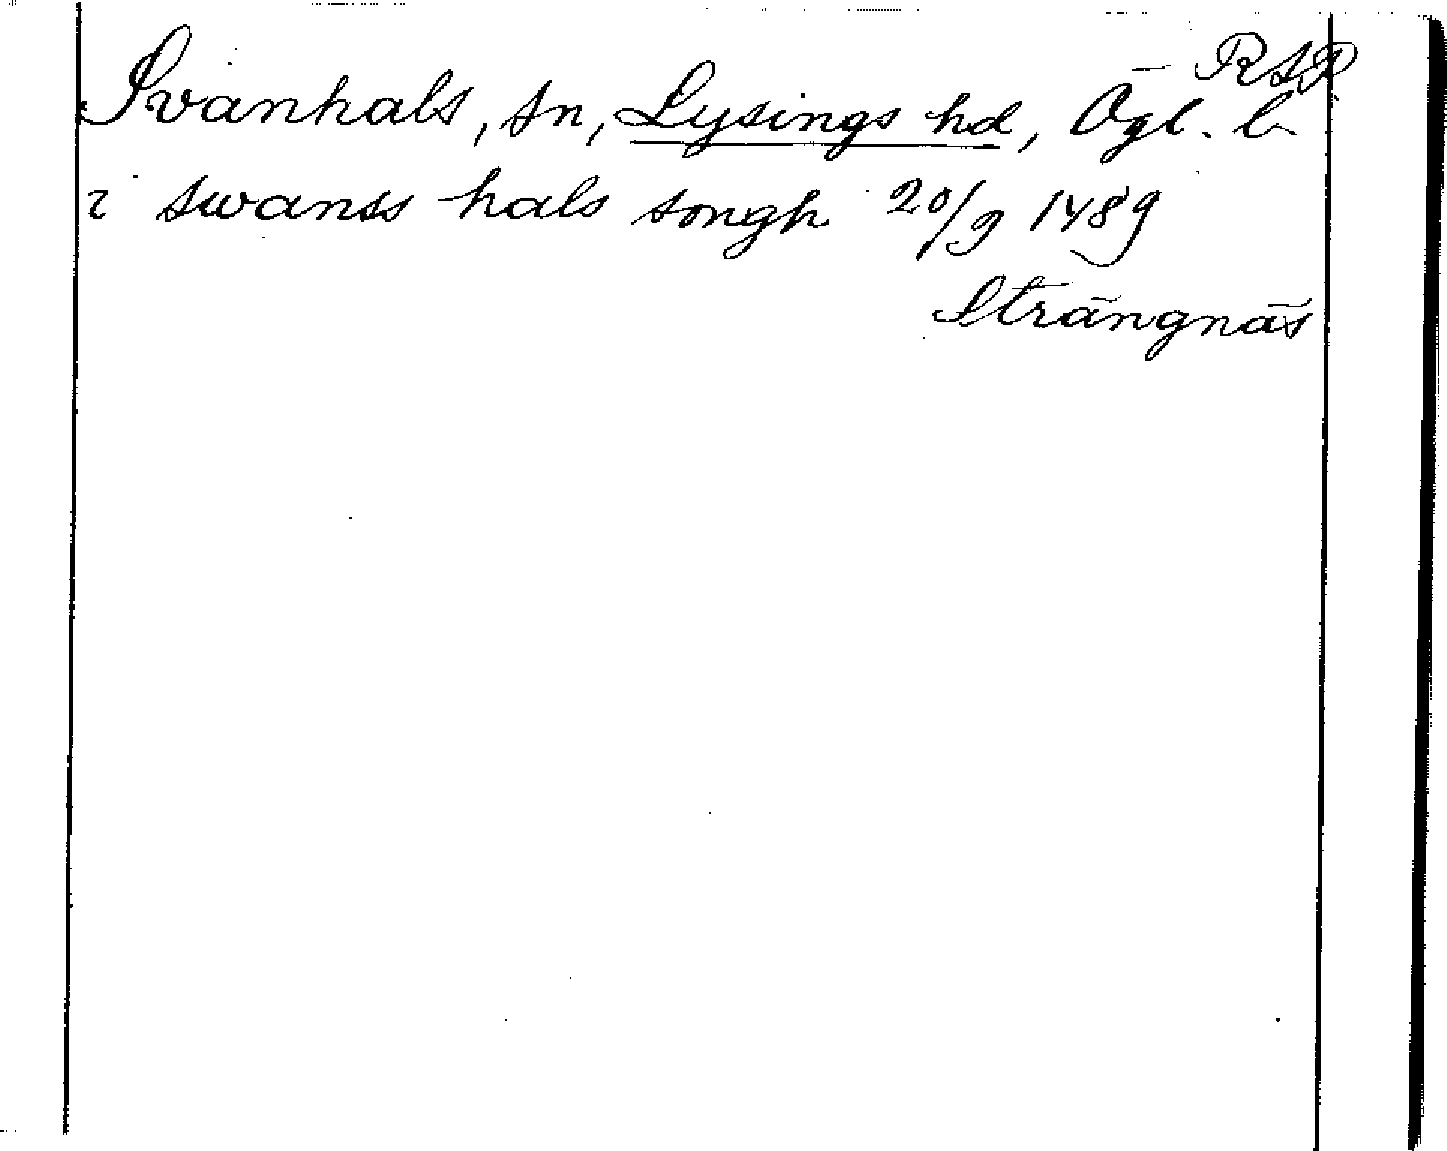 RAP
Svanhals, sn, Lysings hd, Ögl. b
i swanss hals songh 20/9 1489
Strängnäs